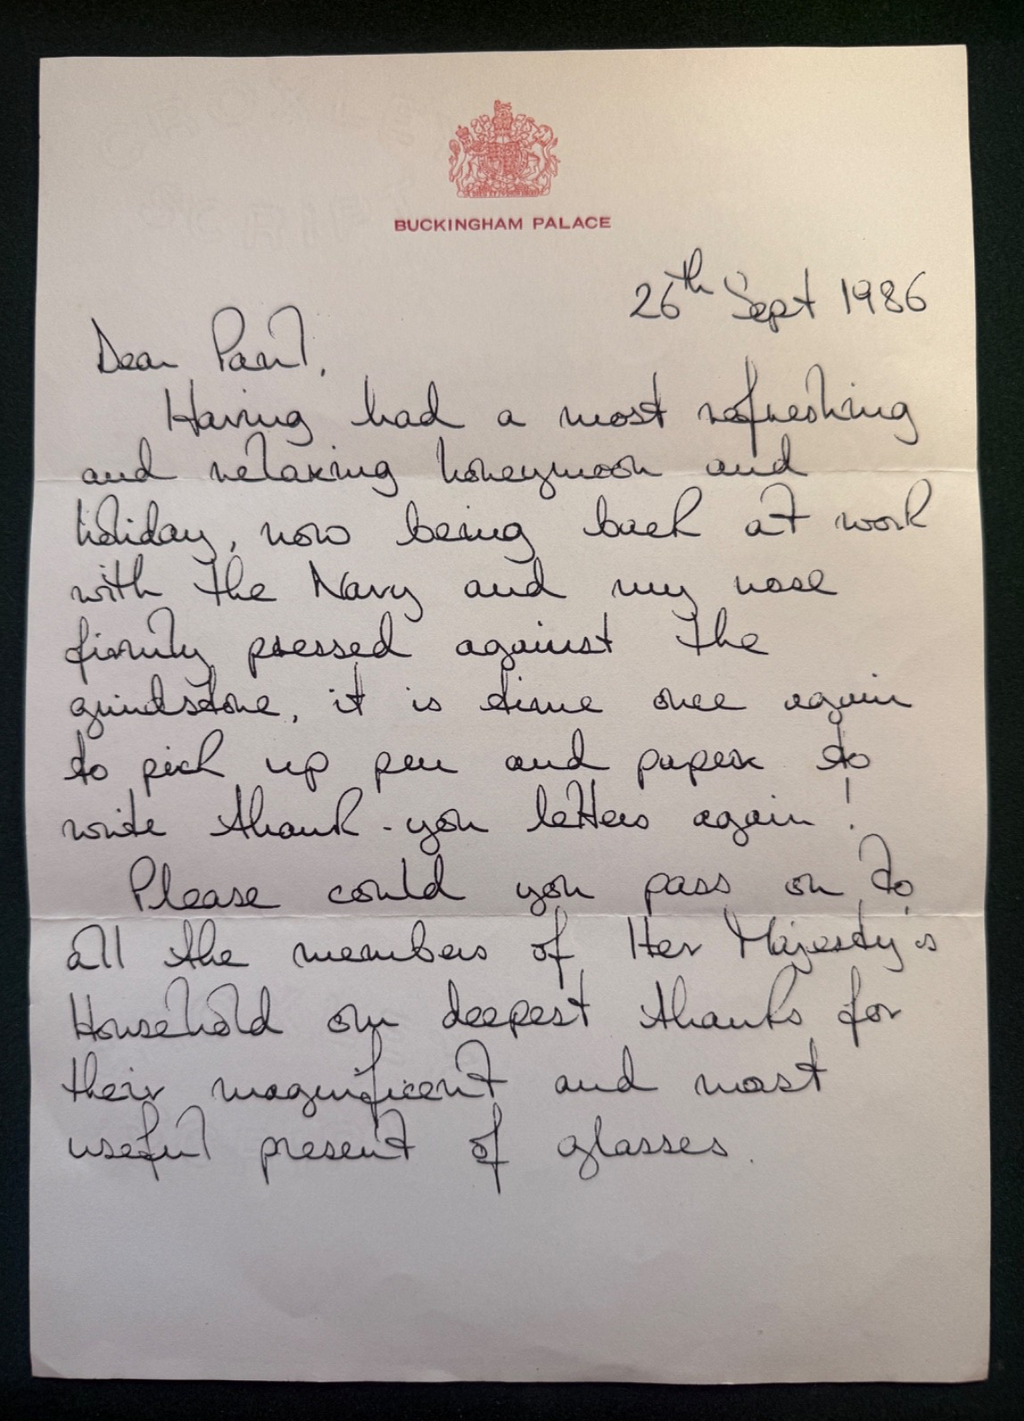 BUCKINGHAM PALACE
26th Sept 1986
Dear Paul,
Having had a most refreshing
and relaxing honeymoon and
holiday, now being back at work
with the Navy and my nose
firmly pressed against the
grindstone, it is time once again
to pick up pen and paper to
write thank-you letters again!
Please could you pass on to
all the members of Her Majesty's
Household our deepest thanks for
their magnificent and most
useful present of glasses.